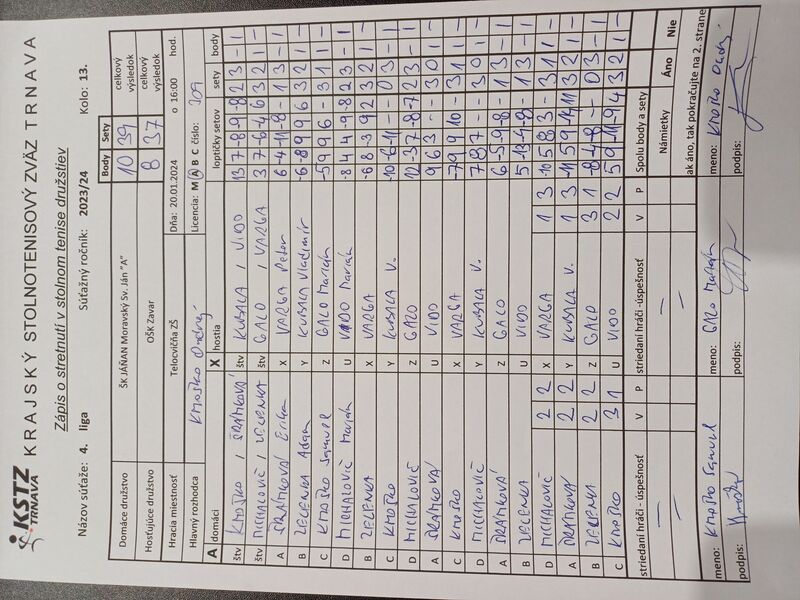 KSTZ
TRNAVA
KRAJSKÝ STOLNOTENISOVÝ ZVÄZ TRNAVA
Zápis o stretnutí v stolnom tenise družstiev
Názov súťaže: 4. liga Súťažný ročník: 2023/24 Kolo: 13.
Body Sety
Domáce družstvo ŠK JÁŇAN Moravský Sv. Ján "A" 10 39 celkový výsledok
Hosťujúce družstvo OŠK Zavar 8 37 celkový výsledok
Hracia miestnosť Telocvičňa ZŠ Dňa: 20.01.2024 o 16:00 hod.
Hlavný rozhodca Kmoško Ondrej Licencia: M A B C číslo: 209
A domáci X hostia loptičky setov sety body
štv KMOŠKO / ŠRÁMKOVÁ štv KUBALA / VIDO 13 7 -8 -9 -8 2 3 - 1
štv MICHALOVIČ / ZELENKA štv GALO / VARGA 3 7 -6 -4 6 3 2 1 -
A ŠRÁMKOVÁ Erika X VARGA Peter 6 -4 -11 -8 - 1 3 - 1
B ZELENKA Adam Y KUBALA Vladimír -6 -8 9 9 6 3 2 1 -
C KMOŠKO Samuel Z GALO Marián -5 9 9 6 - 3 1 1 -
D MICHALOVIČ Marián U VIDO Marián -8 4 4 -9 -8 2 3 - 1
B ZELENKA X VARGA -6 8 -3 9 2 3 2 1 -
C KMOŠKO Y KUBALA V. -10 -6 -11 - - 0 3 - 1
D MICHALOVIČ Z GALO 12 -3 7 -8 -7 2 3 - 1
A ŠRÁMKOVÁ U VIDO 9 6 3 - - 3 0 1 -
C KMOŠKO X VARGA -7 9 9 10 - 3 1 1 -
D MICHALOVIČ Y KUBALA V. 7 8 7 - - 3 0 1 -
A ŠRÁMKOVÁ Z GALO 6 -3 -9 -8 - 1 3 - 1
B ZELENKA U VIDO 5 -13 -4 -8 - 1 3 - 1
D MICHALOVIČ 2 2 X VARGA 1 3 -10 5 8 3 - 3 1 1
A ŠRÁMKOVÁ 2 2 Y KUBALA V. 1 3 -11 5 9 -14 11 3 2 1
B ZELENKA 2 2 Z GALO 3 1 -8 -4 -8 - - 0 3 - 1
C KMOŠKO 3 1 U VIDO 2 2 5 9 -11 -9 4 3 2 1
striedaní hráči - úspešnosť V P striedaní hráči -úspešnosť V P Spolu body a sety
Námietky Áno Nie
ak áno, tak pokračujte na 2. strane
meno: KMOŠKO Samuel meno: GALO Marián meno: KMOŠKO Ondrej
podpis: podpis: podpis: